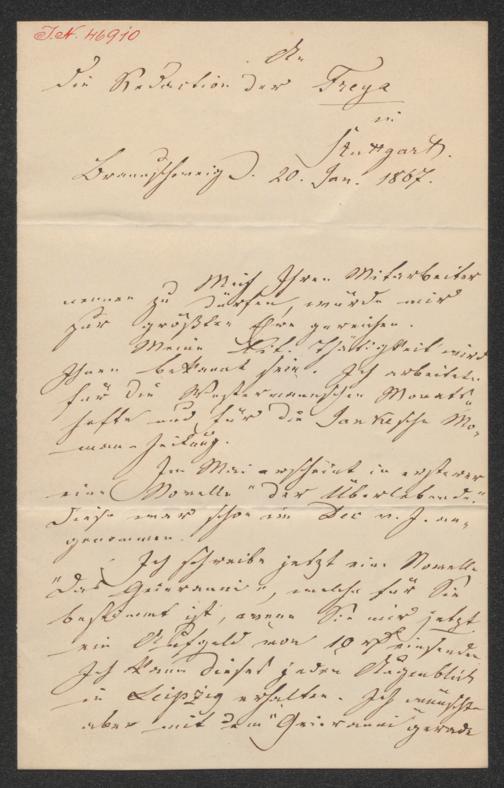 J.N. 46910
An
die Redaction der Freya
in
Stuttgart.
Braunschweig d. 20. Jan. 1867.
Mich Ihren Mitarbeiter
nennen zu dürfen, würde mir
zur größten Ehre gereichen.
Meine lit. Thätigkeit wird
Ihnen bekannt sein. Ich arbeitete
für die Westermannschen Monats-
hefte und für die Jankesche Ro-
man-Zeitung.
Im Mai erscheint in ersterer
eine Novelle "der Überlebende."
Diese war schon im Dec v. J. an-
genommen.
Ich schreibe jetzt eine Novelle
"Das ", welche für Sie
bestimmt ist, wenn Sie mir jetzt
ein Aufgeld von 10 rℓ einsenden
Ich kann dieses jeden Augenblick
in Leipzig erhalten. Ich wünschte
aber mit dem " gerade